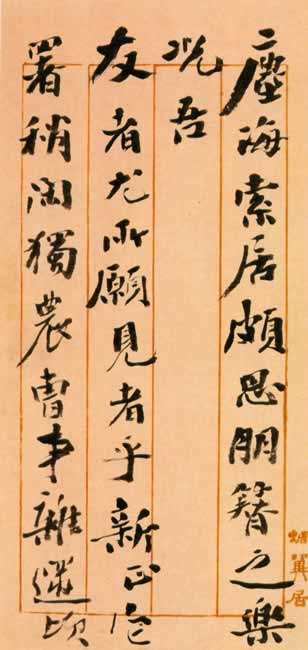 塵海索居頗思朋簪之樂
況吾
友者尤所願見者乎新正各
署稍閑獨農曹事雜遝頃